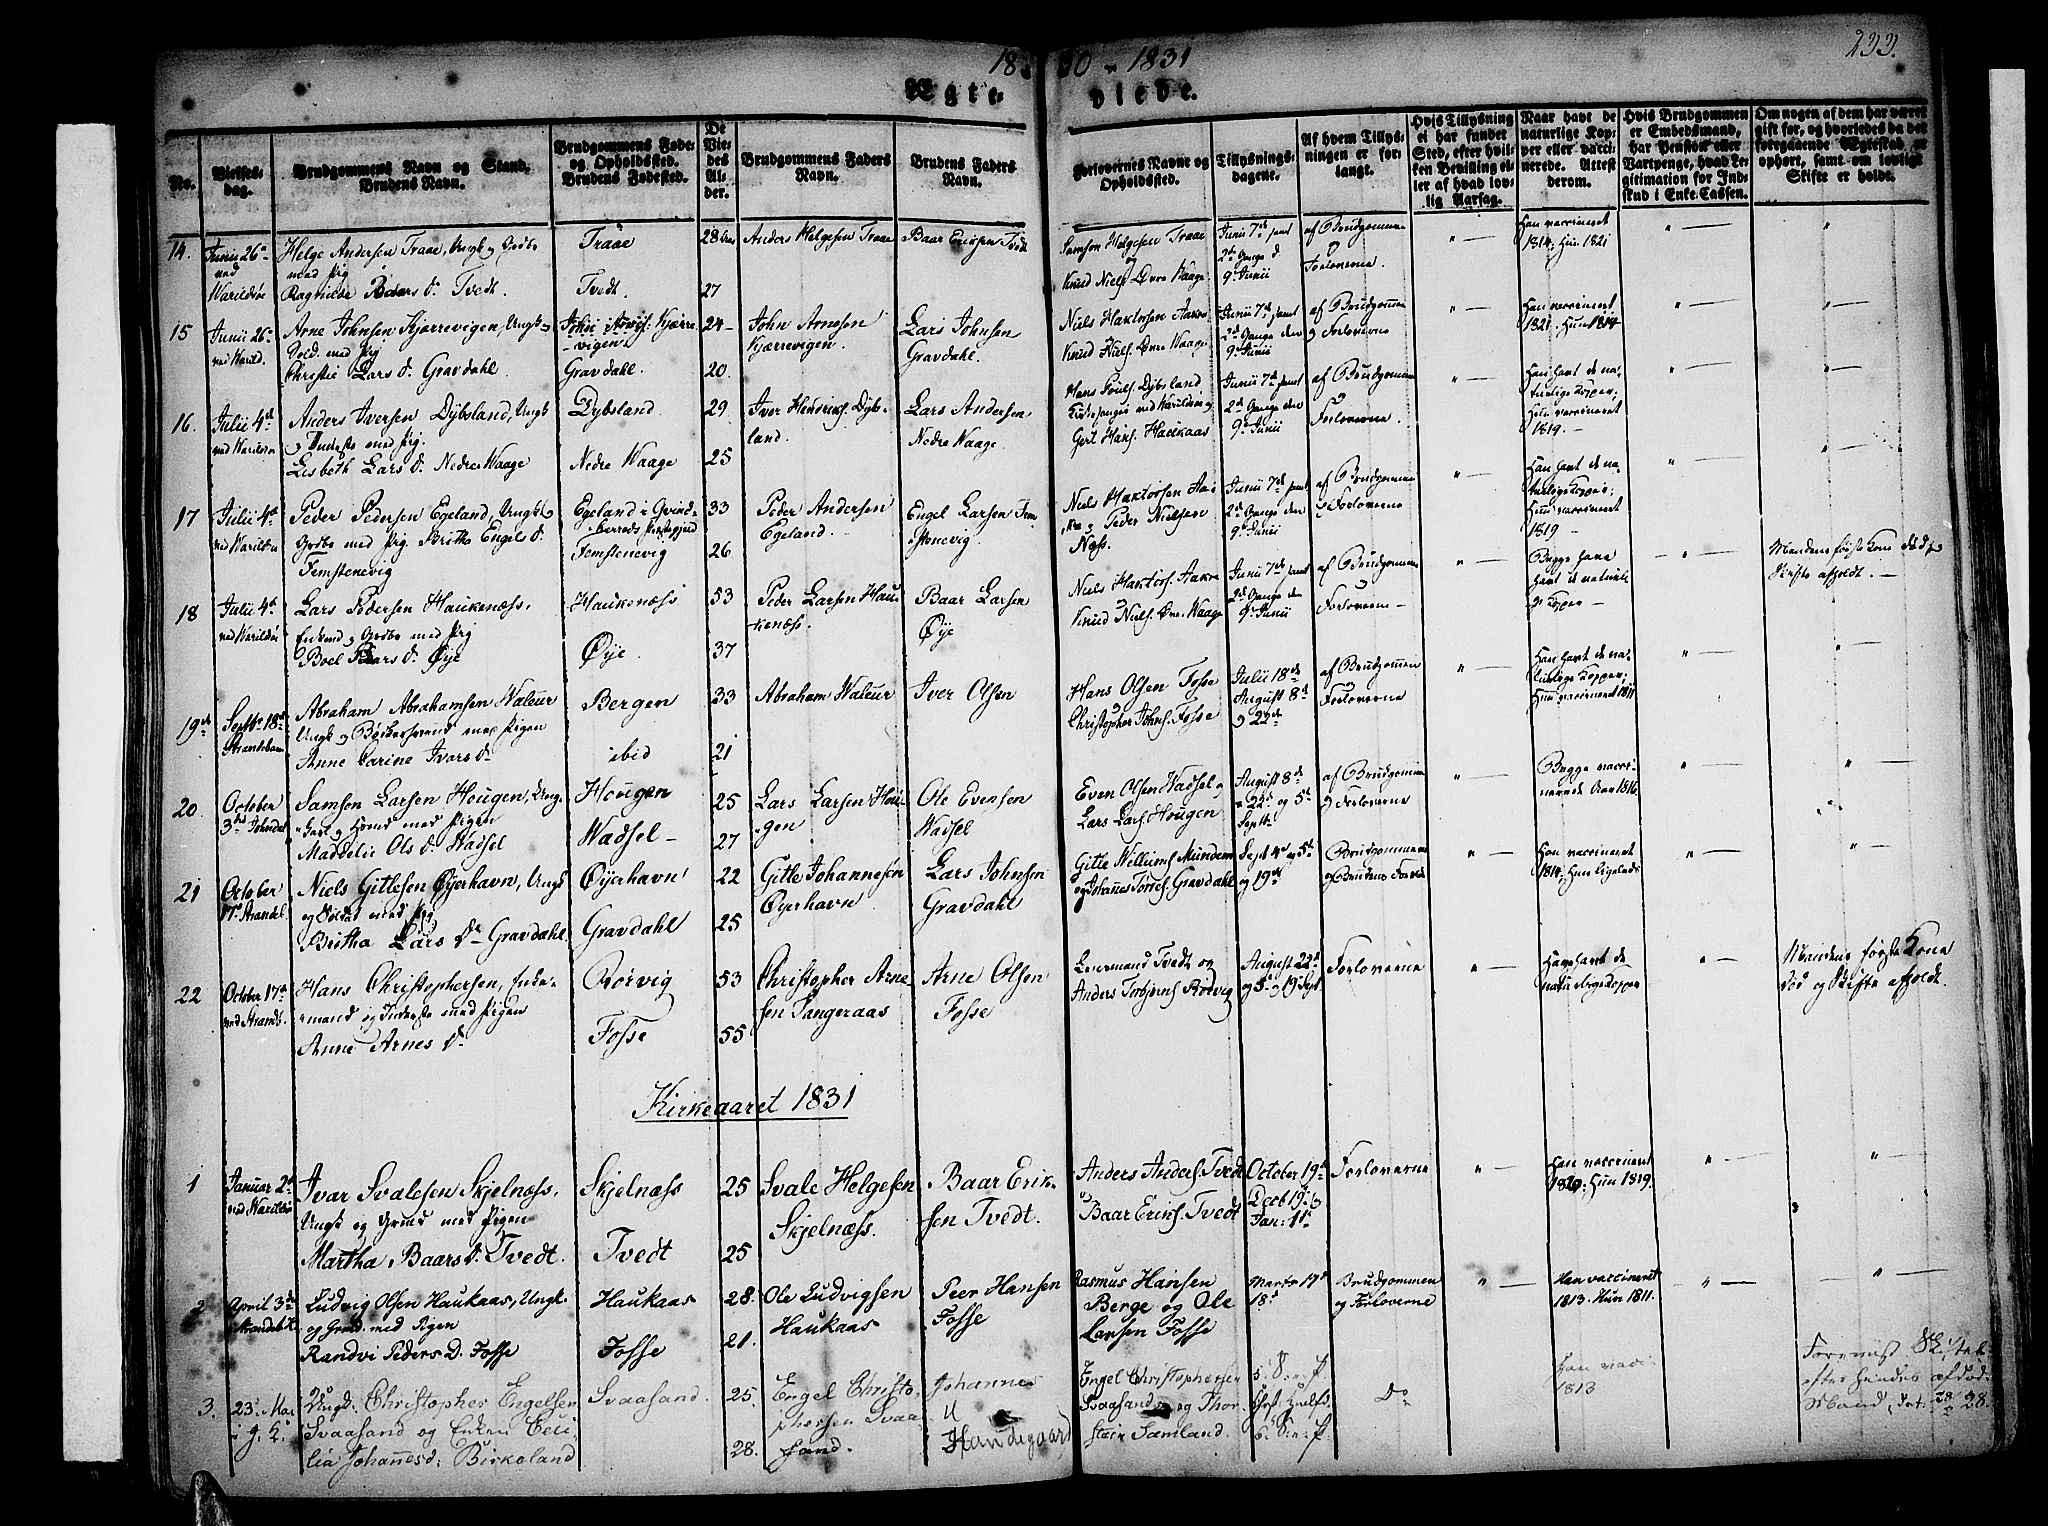 1830 - 1831
233.
Ægte-
viede.
No.
Vielses-
dag.
Brudgommens Navn og Stand.
Brudens Navn.
Brudgommens Føde-
og Opholdssted.
Brudens Fødested.
De
Vie-
des
Al-
der.
Brudgommens Faders
Navn.
Brudens Faders
Navn.
Forlovernes Navne og
Opholdssted.
Tillysnings-
dagene.
Af hvem Tillys-
ningen er for-
langt.
Hvis Tillysning
ei har fundet
Sted, efter hvil-
ken Bevilling el-
ler af hvad lov-
lig Aarsag.
Naar havt de
naturlige Kop-
per eller vacci-
nerede. Attest
derom.
Hvis Brudgommen
er Embedsmand,
har Pension eller
Vartpenge, hvad Le-
gitimation for Ind-
skud i Enke-Cassen.
Om nogen af dem har været
gift før, og hvorledes da det
foregaaende Ægteskab er
ophørt, samt om lovligt
Skifte er holdt.
14.
Junii 26de
ved
Warildsø
Helge Andersen Traae, Ungk. og Gdbr.
med Pig
Ragnilde Baars D. Tvedt.
Traae
Tvedt.
28 Aar
27
Anders Helgesen Traae
Baar Ericsen Tvedt
Samson Helgesen Traae
og
Knud Niels. Øvre Waage
Junii 7de samt
2de Gange d.
9de Junii
af Brudgommen
og
Forloverne.
Han vaccineret
1814; Hun 1821
15
Junii 26de
ved Warilds.
Arne Johnsen Kjærrevigen, Ungk.
Sold. med Pig
Christie Lars D. Gravdahl.
Kjærre-
vigen
Gravdahl.
24
20.
John Arnesen
Kjærrevigen.
Lars Johnsen
Gravdahl.
Niels Haktorsen Aakre
Knud Niels. Øvre Waage
Junii 7de samt
2de Gange den
9de Junii
af Brudgommen
og Forloverne
Han vaccineret
1821. Hun 1814
16.
Julii 4de
ved Warildsø
Anders Iversen Dybsland, Ungk
og Inderste med Pig.
Lisbeth Lars D. Nedre Waage
Dybsland.
Nedre Waage
29.
25
Iver Henriks. Dybs-
land.
Lars Andersen
Nedre Waage.
Hans Pouls. Dybsland
Kirkesanger ved Warildsø og
Gert Hans. Haukaas
Junii 7de samt
2de Gange den
9de Junii
af Brudgommen
og
Forloverne.
Han havt de na-
turlige Kopper;
Hun vaccineret
1819. -
17
Julii 4de
ved Warildsø
Peder Pedersen Egeland, Ungk.
Gdbr med Pig. Britha Engels D.
Femstenevig
Egeland i Qvind-
herreds Præstegjeld
Femstenevig
33
26
Peder Andersen
Egeland.
Engel Larsen Fem-
stenevig
Niels Haktorsen Aa-
kre og Peder Nielsen
Næss.
Junii 7de samt
2de Gange den
9de Junii
af Brudgommen
og Forloverne
Han havt de na-
turlige Kopper;
Hun vaccineret
1819
18
Julii 4de
ved Warildsø
Lars Pedersen Haukenæss,
Enkemd. og Gdbr. med Pig
Boel Baars D. Øye
Haukenæss
Øye.
53
37
Peder Larsen Hau-
kenæss.
Baar Larsen
Øye
Niels Haktors. Aakre
og
Knud Niels. Øvre Waage
Junii 7de samt
2de Gange den
9de Junii
af Brudgommen
og
Forloverne
Begge have
havt de naturli-
ge Kopper
Mandens første Kone død og
Skifte afholdt.
19de
Septbr 18de
Strandebarm
Abraham Abrahamsen Waleur
Ungk. og Bødkersvend med Pigen
Anne Carine Ivers D.
Bergen
ibid
33
21
Abraham Waleur
Iver Olsen
Hans Olsen Fosse
og
Christopher Johns. Fosse
Julii 18de
August 8de
og 22de
af Brudgommen
og
Forloverne
Han havt de na-
turlige Kopper;
Hun vaccineret 1811
20
October
3de Jondal
Samson Larsen Hougen, Ung-
karl og Huusmd med Pigen
Maddelie Ols D. Wadsel
Hougen
Wadsel
25
27
Lars Larsen Hou-
gen
Ole Evensen
Wadsel
Even Olsen Wadsel og
Lars Lars. Hougen
August 8de
22de og 5te
Septbr
af Brudgommen
og Forloverne
Begge vacci-
nerede Aar 1816.
21
October
17de Strandeb.
Niels Gitlesen Øyerhavn, Ungk
og Soldat med Pig
Britha Lars D. Gravdahl
Øyerhavn
Gravdahl
22
25
Gitle Johannesen
Øyerhavn
Lars Johnsen
Gravdahl
Gitle Wellums. Mundem
og Johannes Torres. Gravdahl
Sept 4de 5te
og 19de
Brudgommen
og Brudens Forlov.
Han vaccineret
1814; Hun ligeledes
22
October 17de
ved Strandb.
Hans Christophersen, Enke-
mand og Inderste med Pigen
Anne Arnes D.
Rørvig
Fosse
53
55
Christopher Arne-
sen Tangeraas
Arne Olsen
Fosse
Lensmand Tvedt og
Anders Torbjørns. Rørvig
August 22de
og 5te og 19 Sept
Forloverne
Have havt de
naturlige Kopper
Mandens første Kone
død og Skifte afholdt.
Kirkeaaret 1831
1
Januar 2de
ved Warildsø
Ivar Svalesen Skjelnæss,
Ungk og Grmd med Pigen
Martha Baars D. Tvedt.
Skjelnæss
Tvedt
25
25
Svale Helgesen
Skjelnæss.
Baar Erik-
sen Tvedt.
Anders Anders. Tvedt
og
Baar Eriks. Tvedt
October 19de
Decb 19de og
Jan: 11te
Forloverne
Han vaccineret
1820; Hun 1819.
2
April 3de
Strandeb. K.
Ludvig Olsen Haukaas, Ungk.
og Grmd. med Pigen
Randvi Peders D. Fosse
Haukaas
Fosse
28.
21.
Ole Ludvigsen
Haukaas
Peer Hansen
Fosse
Rasmus Hansen
Berge og Ole
Larsen Fosse
Marts 17de
18de
Brudgommen
og Forloverne
Han vaccineret
1813. Hun 1811.
3.
23. Mai
i J. K.
Ungk: Christopher Engelsen
Svaasand og Enken Ceci-
lia Johannesd: Birkeland
Svaasand.
25.
28.
Engel Christo-
phersen Svaa-
sand.
Johannes
Handegaard
Engel Christophersen
Svaasand og Thor-
stein Samland.
Do
Han vacc:
1813
Forevist Skifteb.
efter hendes afdøde
Mand, dat. 28.